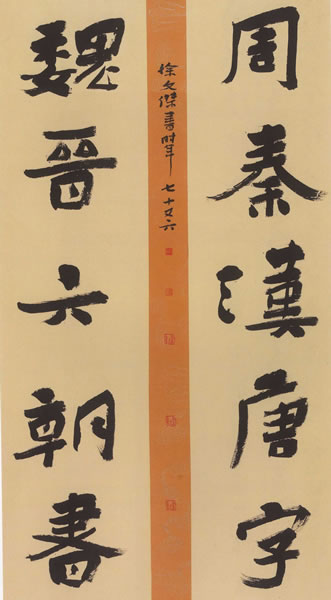 周秦漢唐字
徐文傑書時年七十又六
魏晋六朝書